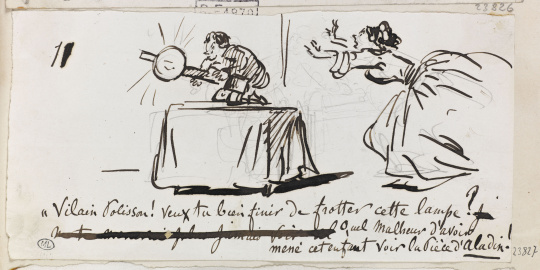 23826
1
« Vilain Polisson! veux tu bien finir de frotter cette lampe?!
quel Malheur d'avoir
mené cet enfant voir la Pièce d'Aladin!
ML
23827